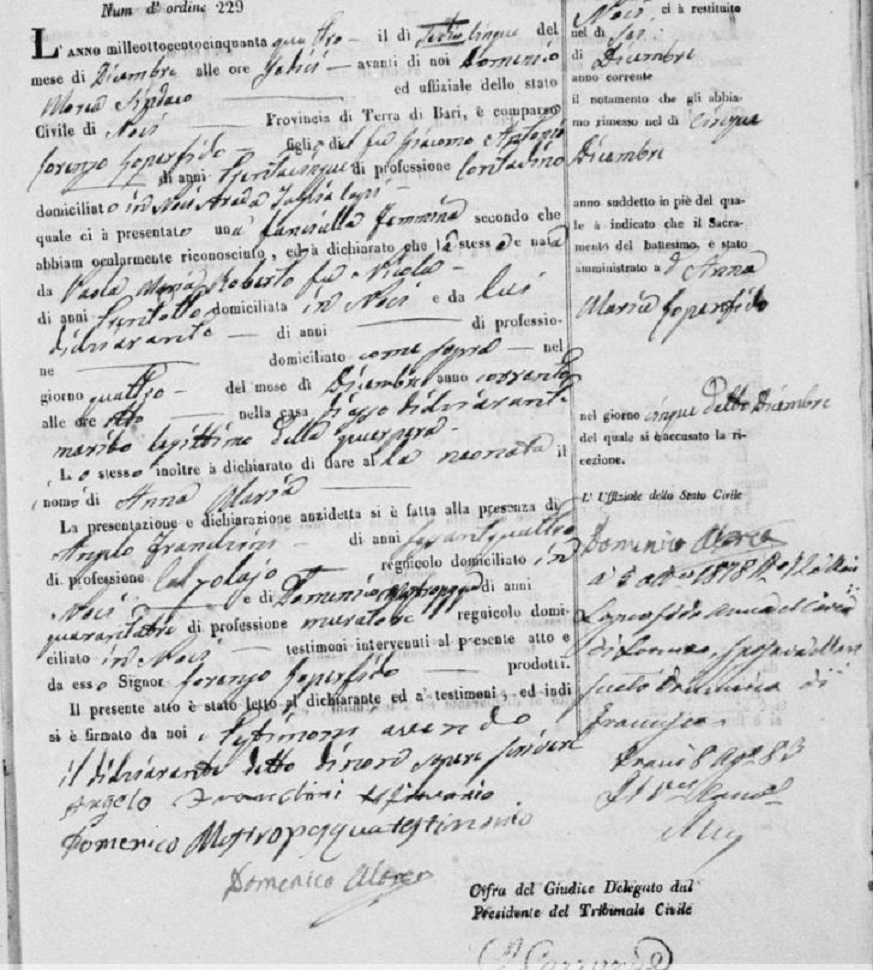 Num d' ordine 229
L' ANNO milleottocentocinquanta quattro il dì cinque del
mese di Dicembre alle ore sedici avanti di noi Domenico
Morea Sindaco ed uffiziale dello stato
Civile di Noci Provincia di Terra di Bari, è comparso
Lorenzo Loperfido figlio del fu Giacomo Antonio
di anni trentacinque di professione Contadino
domiciliato in Noci Strada
quale ci à presentato una fanciulla femmina secondo che
abbiam ocularmente riconosciuto, ed à dichiarato che la stessa è nata
da Paola Maria Roberto fu Nicola
di anni trentotto domiciliata in Noci e da lui
dichiarante di anni di professio-
ne domiciliato come sopra nel
giorno quattro del mese di Dicembre anno corrente
alle ore otto nella casa di esso dichiarante
marito legittimo della puerpera
Lo stesso inoltre à dichiarato di dare alla neonata il
nome di Anna Maria
La presentazione e dichiarazione anzidetta si è fatta alla presenza di
Angelo Franchini di anni sessantaquattro
di professione calzolajo regnicolo domiciliato in
Noci e di Domenico Mastropasqua di anni
quarantatre di professione muratore regnicolo domi-
ciliato in Noci testimoni intervenuti al presente atto e
da esso Signor Lorenzo Loperfido prodotti.
Il presente atto è stato letto al dichiarante ed a' testimoni, ed indi
si è firmato da noi e testimoni avendo
il dichiarante detto di non sapere scrivere
Angelo Franchini testimonio
Domenico Mastropasqua testimonio
Domenico Morea
Noci ci à restituito
nel dì sei
di Dicembre
anno corrente
il notamento che gli abbia-
mo rimesso nel dì cinque
Dicembre
anno suddetto in piè del qua-
le à indicato che il Sacra-
mento del battesimo, è stato
amministrato a d' Anna
Maria Loperfido
nel giorno cinque detto Dicembre
del quale si è accusato la ri-
cezione.
L' Uffiziale dello Stato Civile
Domenico Morea
1878
Loperfido Anna Maria
di Lorenzo,
Domenico di
Francesco
Trani 8
Cifra del Giudice Delegato dal
Presidente del Tribunale Civile